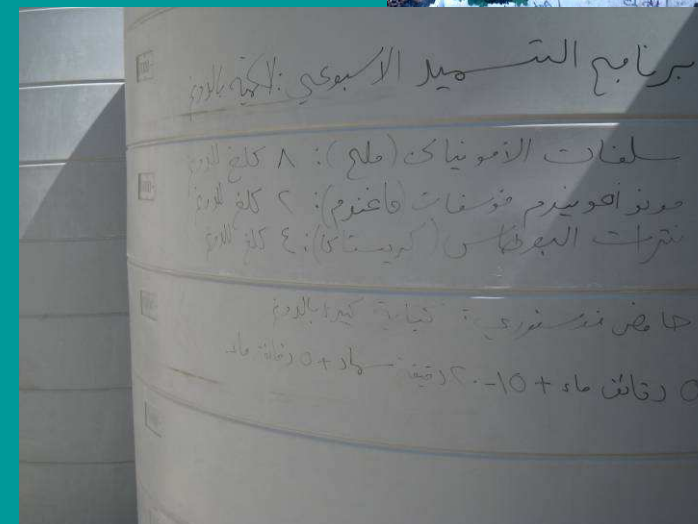 برنامج التسميد الأسبوعي: الكمية بالدونم
سلفات الأمونياك (ملح): ٨ كلغ للدونم
مونو أمونيوم فوسفات (ماغنوم): ٢ كلغ للدونم
نترات البوطاس (كريستا ك): ٤ كلغ للدونم
حامض فوسفوري: كباية كبيرة بالدونم
٥ دقائق ماء + ١٥-٢٠ دقيقة سماد + ٥ دقائق ماء